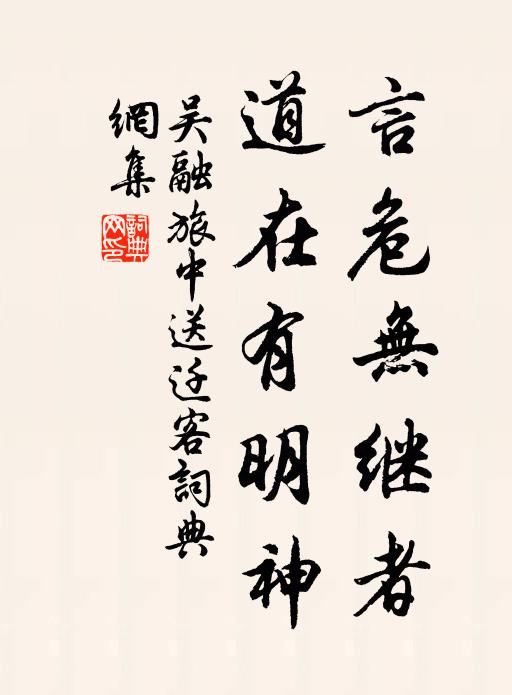 言危無继者
道在有明神
吴融旅中送迁客詞典
網集
詞典
网印